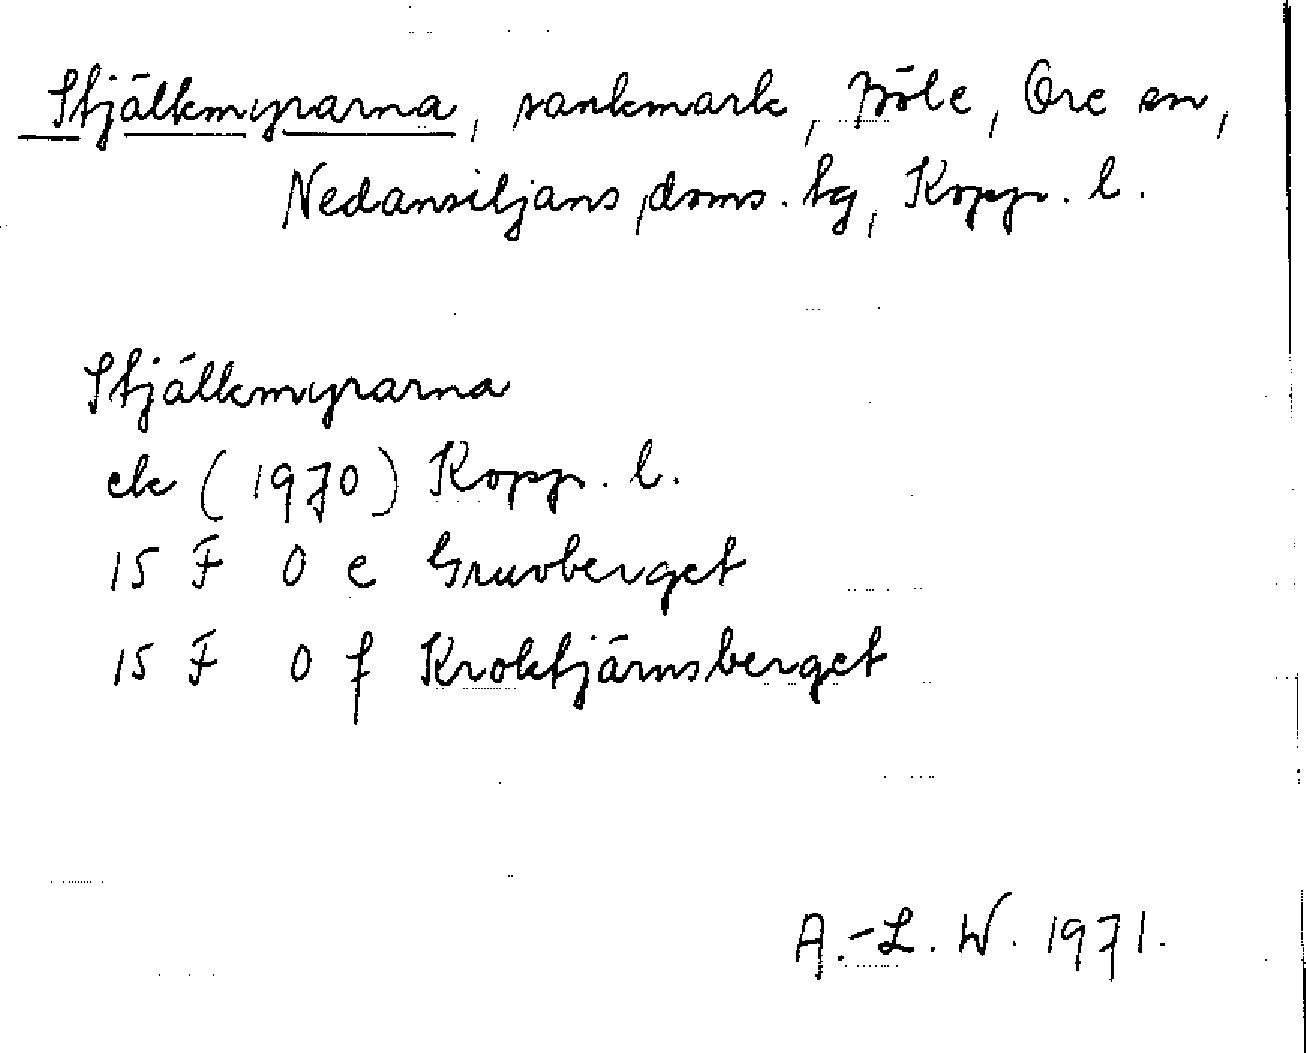 Stjälkmyrarna, sankmark, Böle, Ore sn,
Nedansiljans doms. tg, Kopp. l.
Stjälkmyrarna
ek (1970) Kopp. l.
15 F 0 e Gruvberget
15 F 0 f Kroktjärnsberget
A.-L. W. 1971.